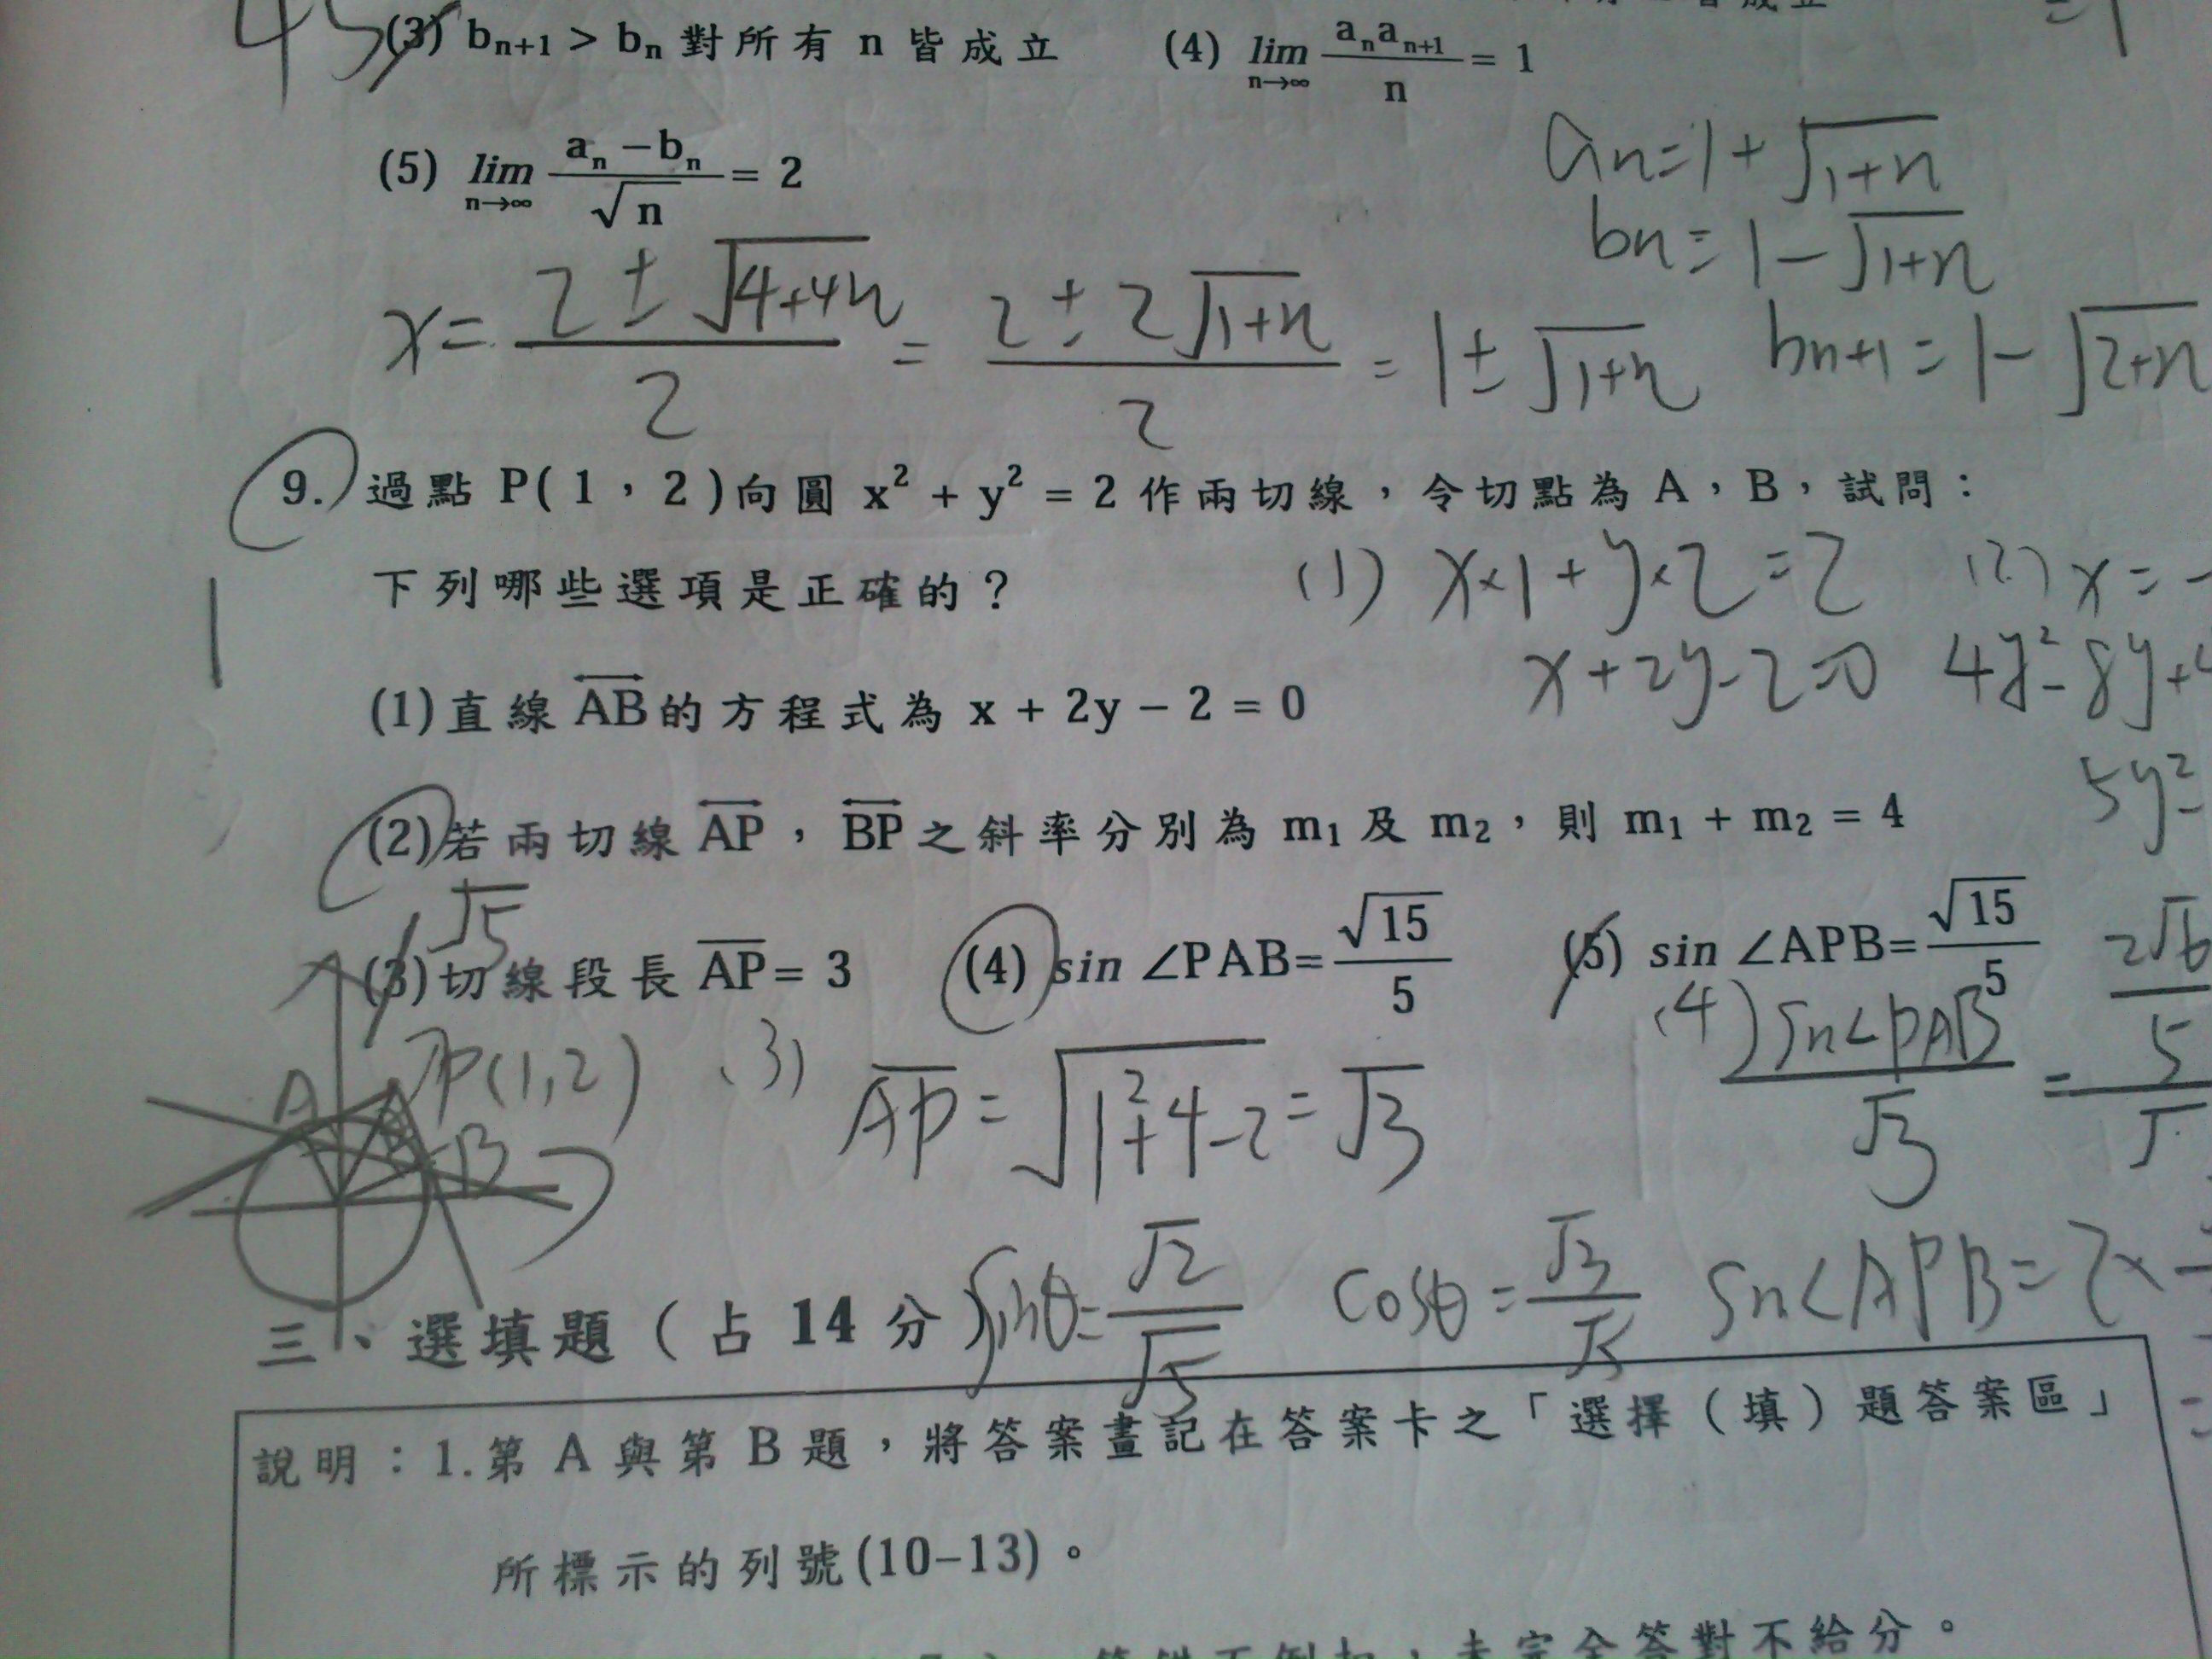 45
(3) bₙ₊₁ > bₙ 對所有 n 皆成立 (4) lim n→∞ aₙaₙ₊₁/n = 1
(5) lim n→∞ (aₙ − bₙ)/√n = 2
an = 1 + √(1+n)
bn = 1 − √(1+n)
x = (2 ± √(4+4n))/2 = (2 ± 2√(1+n))/2 = 1 ± √(1+n)
bn+1 = 1 − √(2+n)
9. 過點 P( 1 , 2 )向圓 x² + y² = 2 作兩切線,令切點為 A,B,試問:
下列哪些選項是正確的?
(1) x×1 + y×2 = 2
x + 2y − 2 = 0
(2) x = −
4y² − 8y + 4
5y² −
(1)直線 AB 的方程式為 x + 2y − 2 = 0
(2)若兩切線 AP,BP 之斜率分別為 m₁ 及 m₂,則 m₁ + m₂ = 4
√5
(3)切線段長 AP = 3 (4) sin ∠PAB = √15/5 (5) sin ∠APB = √15/5
A
P(1,2)
B
(3) AP = √(1²+4−2) = √3
(4) sin∠PAB/√3 = 2√6/5
sinθ = √2/√5 cosθ = √3/√5 sin∠APB = 2×
三、選填題(占 14 分
說明:1.第 A 與第 B 題,將答案畫記在答案卡之「選擇(填)題答案區」
所標示的列號(10−13)。
未完全答對不給分。